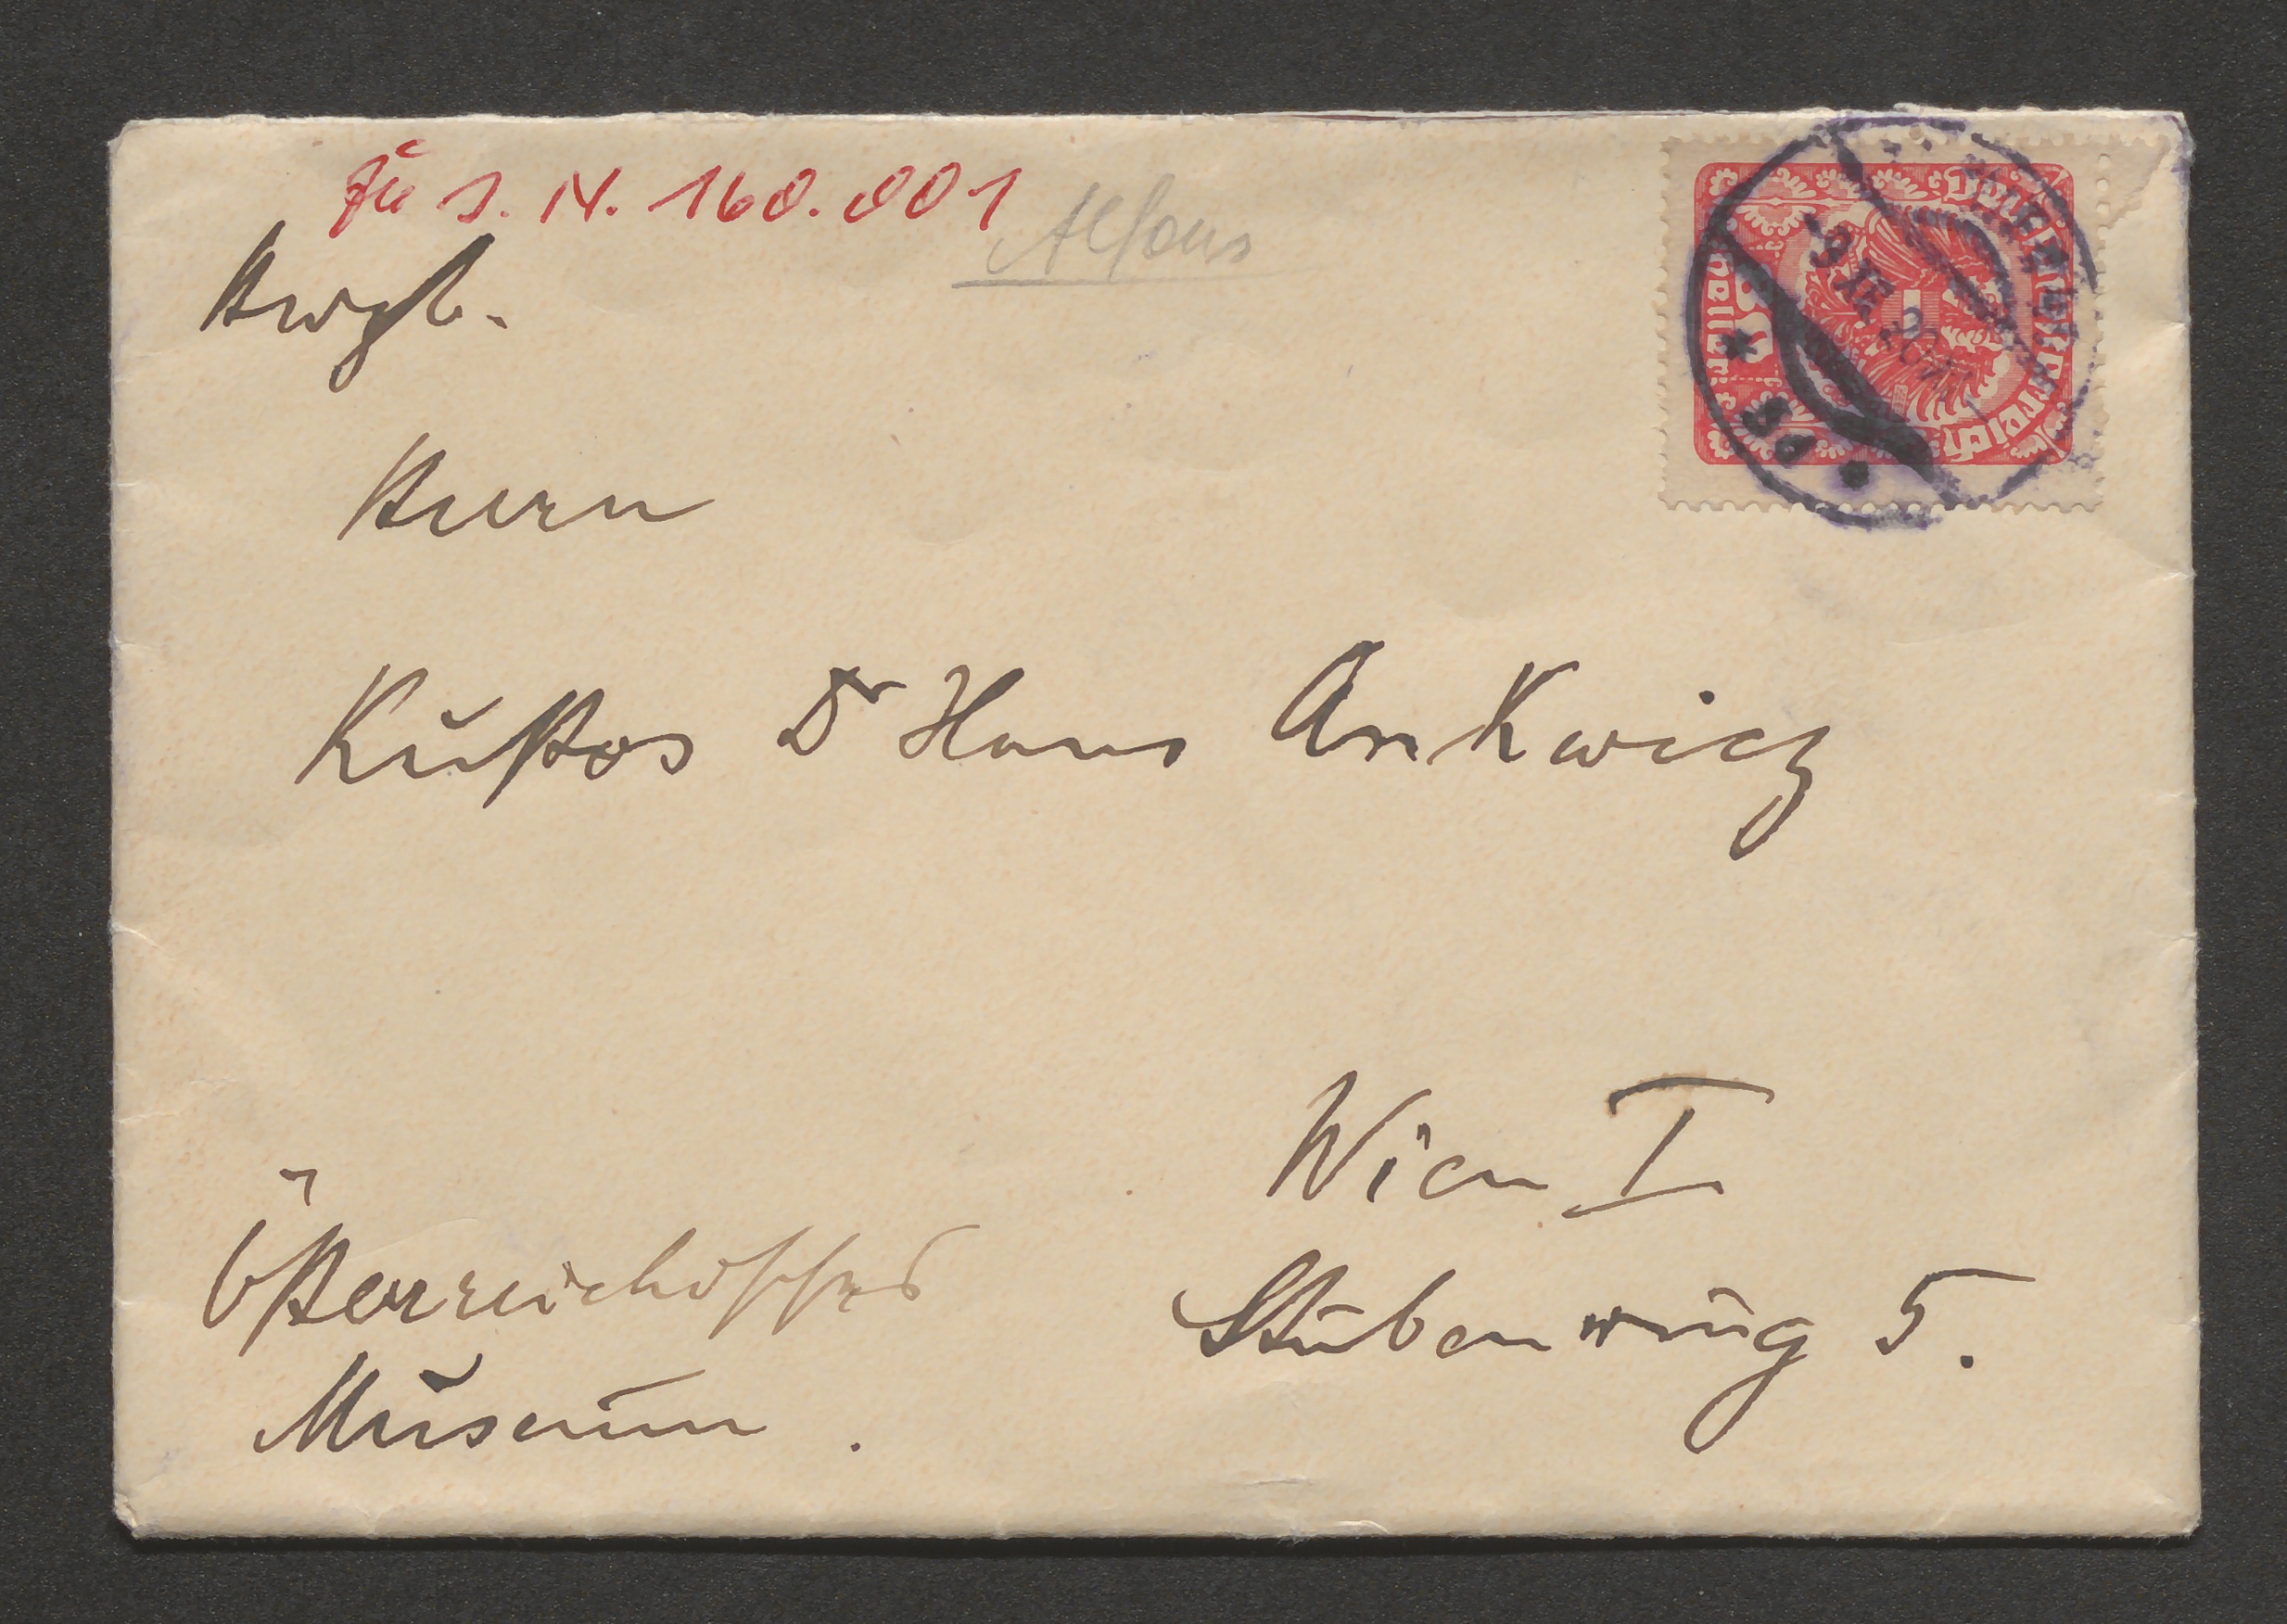 Zu I. N. 160.001
Alfons
Hwgb.
Herrn
Kustos Dr Hans Ankwicz
Wien I
Stubenring 5.
Österreichisches
Museum.
80 Heller
Deutschösterreich
9 XII 20